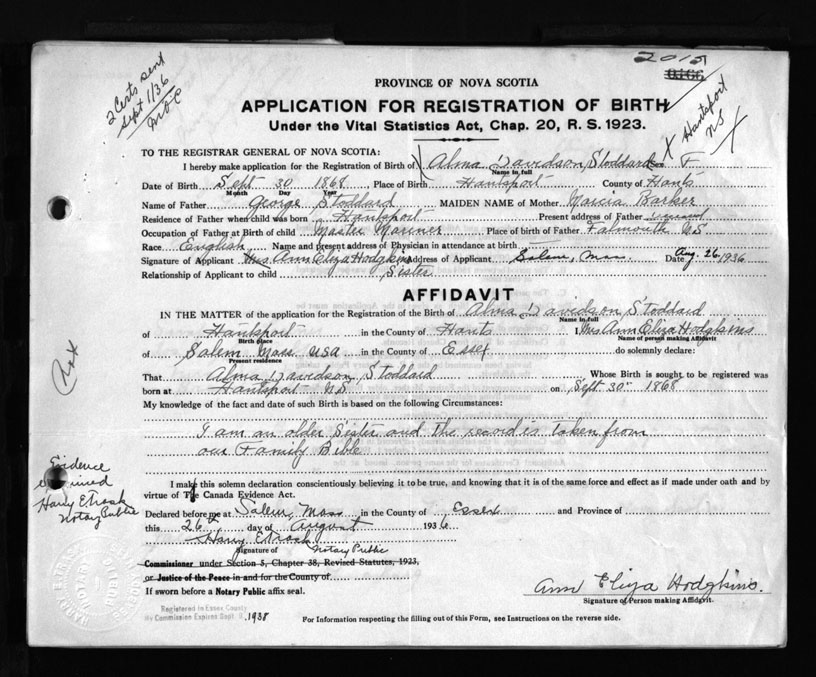 2 Certs sent
Sept 1/36
2015
0166
Hantsport
NS
PROVINCE OF NOVA SCOTIA
APPLICATION FOR REGISTRATION OF BIRTH
Under the Vital Statistics Act, Chap. 20, R. S. 1923.
TO THE REGISTRAR GENERAL OF NOVA SCOTIA:
I hereby make application for the Registration of Birth of Alma Davidson Stoddard F
Name in full
Date of Birth Sept 30 1868 Place of Birth Hantsport County of Hants
Month Day Year
Name of Father George Stoddard MAIDEN NAME of Mother Marcia Barker
Residence of Father when child was born Hantsport Present address of Father
Occupation of Father at Birth of child Master Mariner Place of birth of Father Falmouth NS
Race English Name and present address of Physician in attendance at birth
Signature of Applicant Mrs. Ann Eliza Hodgkins Address of Applicant Salem, Mass. Date Aug. 26 1936
Relationship of Applicant to child Sister
AFFIDAVIT
IN THE MATTER of the application for the Registration of the Birth of Alma Davidson Stoddard
Name in full
of Hantsport in the County of Hants I, Mrs Ann Eliza Hodgkins
Birth place Name of person making Affidavit
of Salem Mass USA in the County of Essex do solemnly declare:
Present residence
That Alma Davidson Stoddard Whose Birth is sought to be registered was
born at Hantsport NS on Sept 30" 1868
My knowledge of the fact and date of such Birth is based on the following Circumstances:
I am an older Sister and the record is taken from
our Family Bible
I make this solemn declaration conscientiously believing it to be true, and knowing that it is of the same force and effect as if made under oath and by
virtue of The Canada Evidence Act.
Evidence
examined
Harry E Trask
Notary Public
Declared before me at Salem, Mass in the County of Essex and Province of
this 26th day of August 1936
Harry E Trask
Signature of Notary Public
Commissioner under Section 5, Chapter 38, Revised Statutes, 1923,
or Justice of the Peace in and for the County of
If sworn before a Notary Public affix seal.
Ann Eliza Hodgkins.
Signature of Person making Affidavit.
Registered in Essex County
My Commission Expires Sept. 1938
For Information respecting the filling out of this Form, see Instructions on the reverse side.